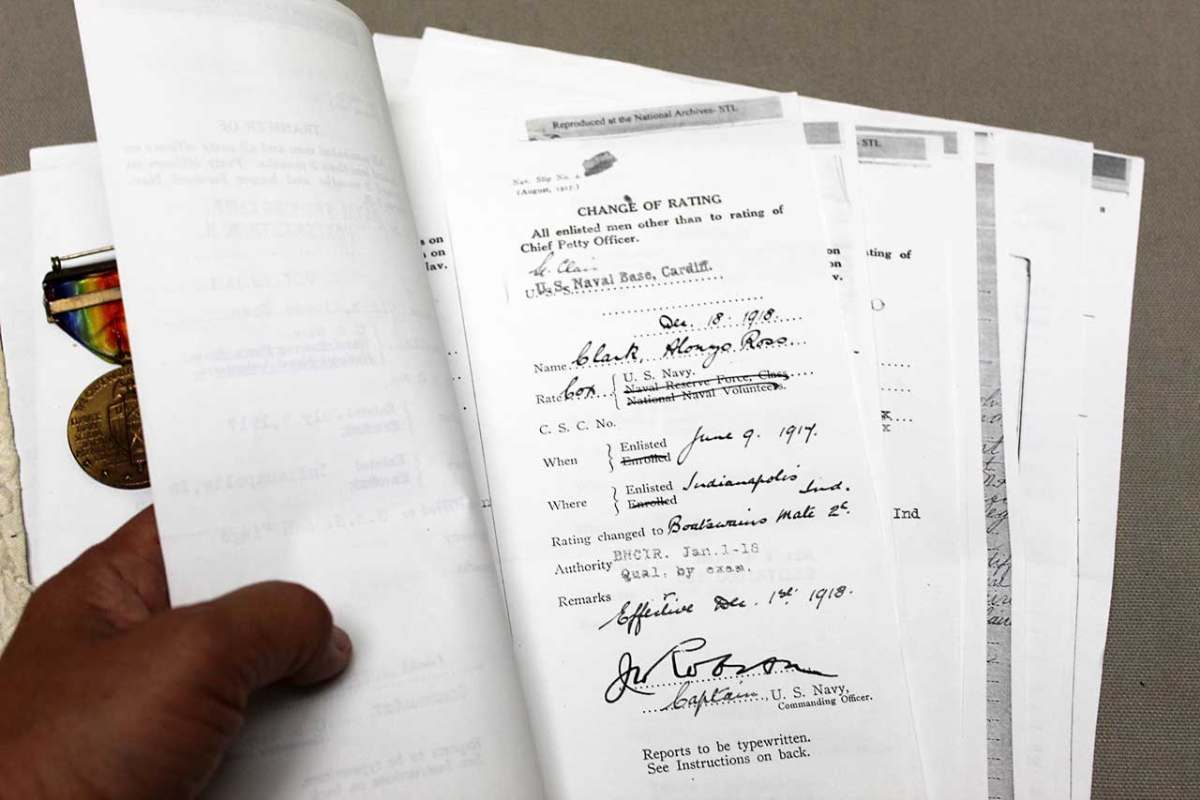 Reproduced at the National Archives- STL
Nav. Slip No. 4
(August, 1917.)
CHANGE OF RATING
All enlisted men other than to rating of
Chief Petty Officer.
St. Clair
U. S. S. U.S. Naval Base, Cardiff.
Dec. 18. 1918.
Name Clark, Alonzo Ross
Rate Cox. { U. S. Navy.
Naval Reserve Force, Class
National Naval Volunteers.
C. S. C. No.
When } Enlisted June 9. 1917.
Enrolled
Where { Enlisted Indianapolis Ind.
Enrolled
Rating changed to Boatswains Mate 2c.
Authority BHCIR. Jan.1-18
Qual. by exam.
Remarks
Effective Dec. 1st 1918.
Robson
Captain, U. S. Navy,
Commanding Officer.
Reports to be typewritten.
See Instructions on back.
s on
on
Nav.
STL
on
on
v.
ating of
Ind